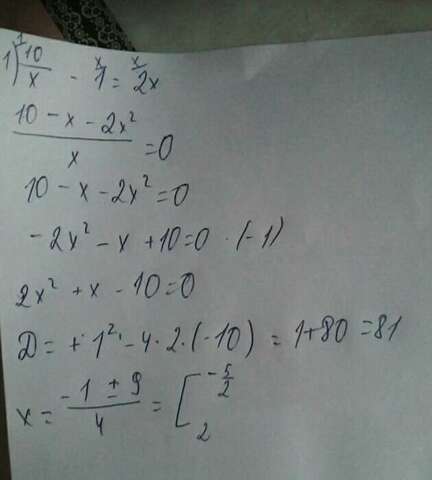 1) 10/x - 1 = 2x
(10 - x - 2x²)/x = 0
10 - x - 2x² = 0
-2x² - x + 10 = 0 · (-1)
2x² + x - 10 = 0
D = + 1² - 4 · 2 · (-10) = 1 + 80 = 81
x = (-1 ± 9)/4 = [ -5/2
2